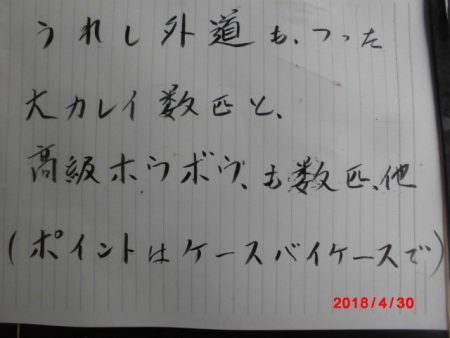 うれし外道も、つった
大カレイ数匹と、
高級ホウボウ、も数匹、他
(ポイントはケースバイケースで)
2018/4/30